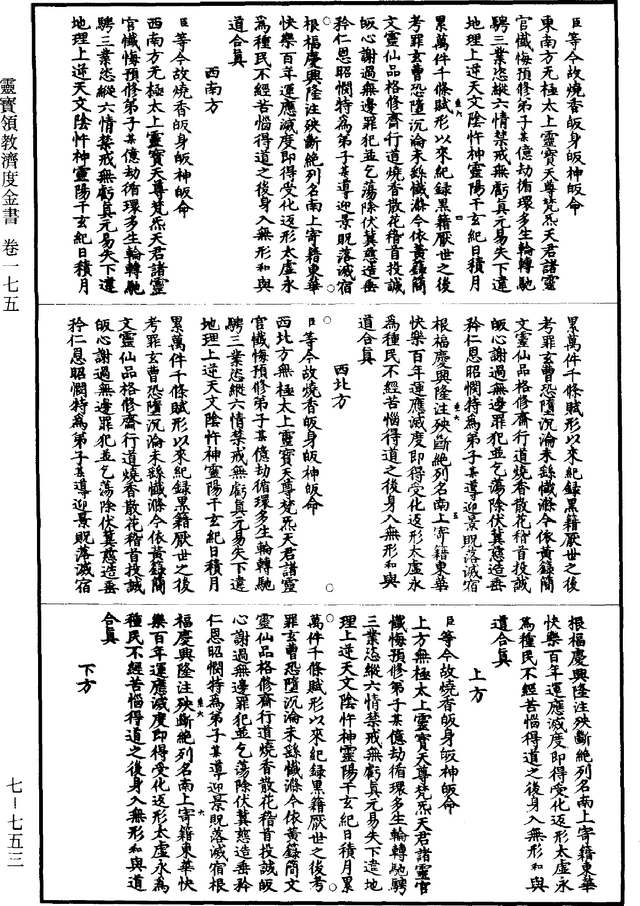 靈寶領教濟度金書 卷一七五
七－七五三
臣等今故燒香皈身皈神皈命
東南方无極太上靈寶天尊梵炁天君諸靈
官懺悔預修弟子某億劫循環多生輪轉馳
騁三業恣縱六情禁戒無虧真元易失下違
地理上逆天文陰忤神靈陽干玄紀日積月
累萬件千條賦形以來紀錄黑籍厭世之後
考罪玄曹恐墮沉淪未繇懺滌今依黃籙簡
文靈仙品格修齋行道燒香散花稽首投誠
皈心謝過無邊罪犯並乞蕩除伏冀慈造垂
矜仁恩昭憫特為弟子某導迎景貺落滅宿
根福慶興隆注殃斷絕列名南上寄籍東華
快樂百年運應滅度即得受化返形太虛永
為種民不經苦惱得道之後身入無形和與
道合真
西南方
臣等今故燒香皈身皈神皈命
西南方无極太上靈寶天尊梵炁天君諸靈
官懺悔預修弟子某億劫循環多生輪轉馳
騁三業恣縱六情禁戒無虧真元易失下違
地理上逆天文陰忤神靈陽干玄紀日積月
累萬件千條賦形以來紀錄黑籍厭世之後
考罪玄曹恐墮沉淪未繇懺滌今依黃籙簡
文靈仙品格修齋行道燒香散花稽首投誠
皈心謝過無邊罪犯並乞蕩除伏冀慈造垂
矜仁恩昭憫特為弟子某導迎景貺落滅宿
根福慶興隆注殃斷絕列名南上寄籍東華
快樂百年運應滅度即得受化返形太虛永
為種民不經苦惱得道之後身入無形和與
道合真
西北方
臣等今故燒香皈身皈神皈命
西北方無極太上靈寶天尊梵炁天君諸靈
官懺悔預修弟子某億劫循環多生輪轉馳
騁三業恣縱六情禁戒無虧真元易失下違
地理上逆天文陰忤神靈陽干玄紀日積月
累萬件千條賦形以來紀錄黑籍厭世之後
考罪玄曹恐墮沉淪未繇懺滌今依黃籙簡
文靈仙品格修齋行道燒香散花稽首投誠
皈心謝過無邊罪犯並乞蕩除伏冀慈造垂
矜仁恩昭憫特為弟子某導迎景貺落滅宿
根福慶興隆注殃斷絕列名南上寄籍東華
快樂百年運應滅度即得受化返形太虛永
為種民不經苦惱得道之後身入無形和與
道合真
上方
臣等今故燒香皈身皈神皈命
上方無極太上靈寶天尊梵炁天君諸靈官
懺悔預修弟子某億劫循環多生輪轉馳騁
三業恣縱六情禁戒無虧真元易失下違地
理上逆天文陰忤神靈陽干玄紀日積月累
萬件千條賦形以來紀錄黑籍厭世之後考
罪玄曹恐墮沉淪未繇懺滌今依黃籙簡文
靈仙品格修齋行道燒香散花稽首投誠皈
心謝過無邊罪犯並乞蕩除伏冀慈造垂矜
仁恩昭憫特為弟子某導迎景貺落滅宿根
福慶興隆注殃斷絕列名南上寄籍東華快
樂百年運應滅度即得受化返形太虛永為
種民不經苦惱得道之後身入無形和與道
合真
下方